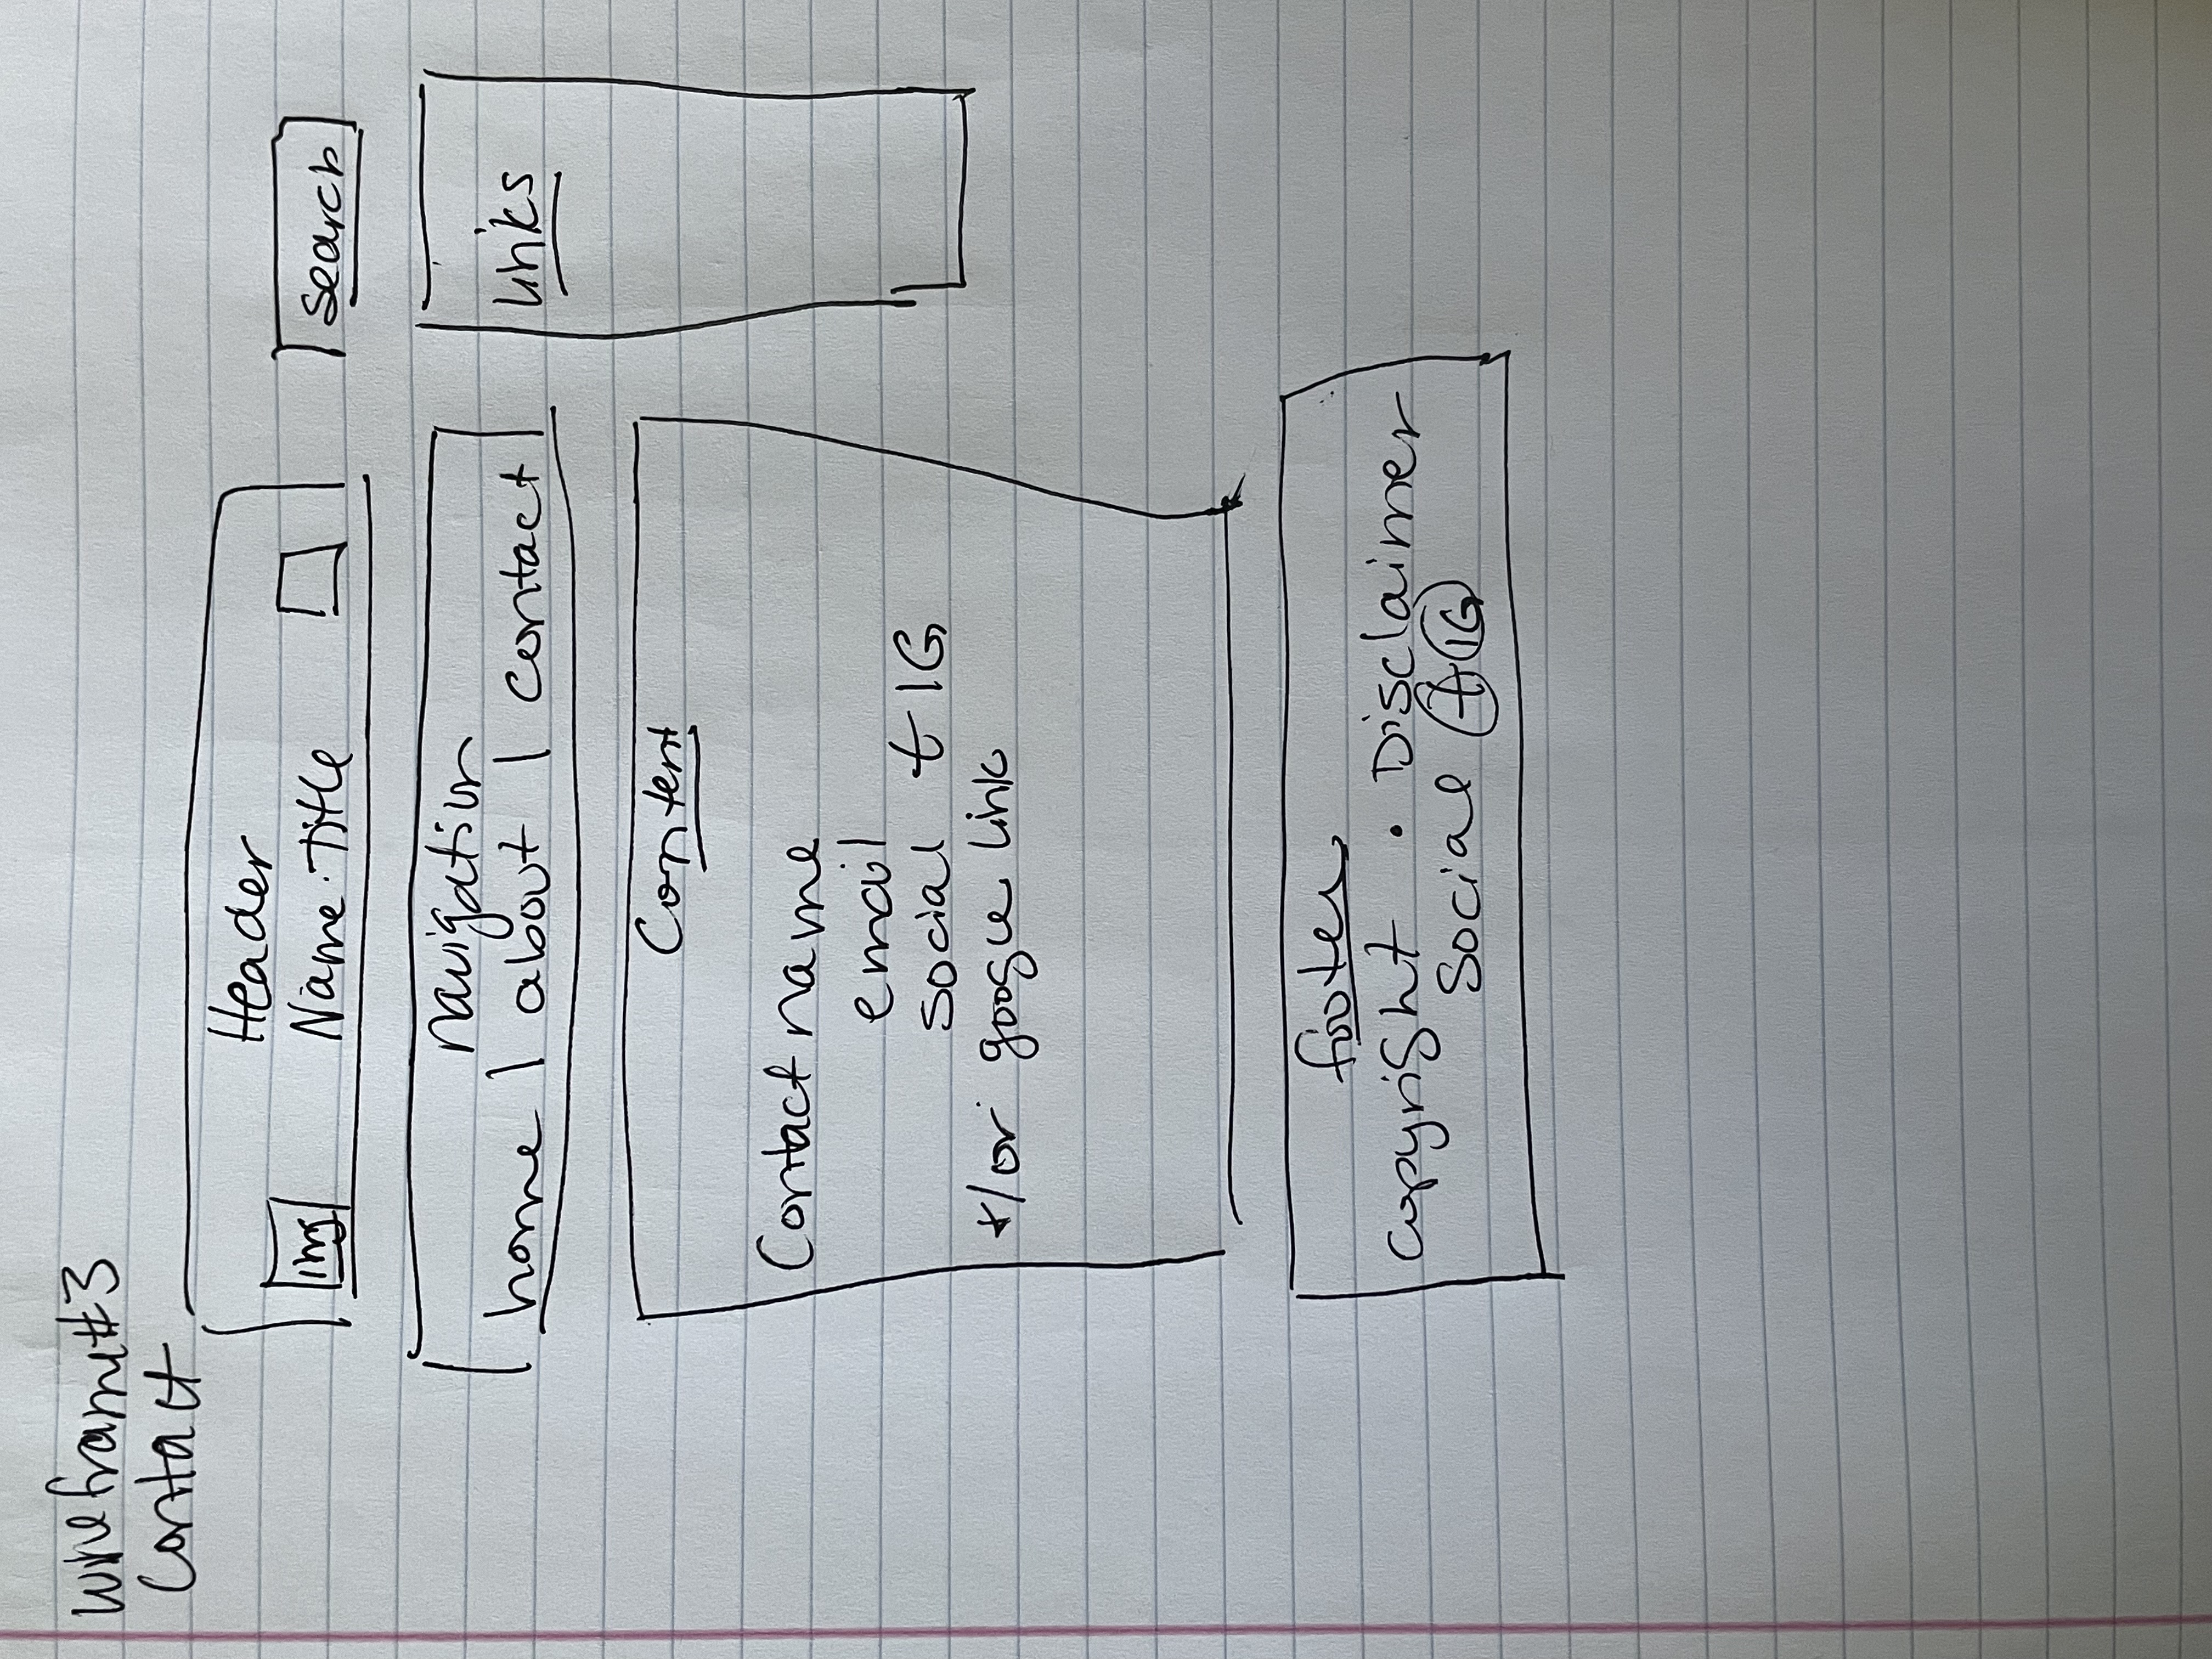 Wireframe #3
Contact
Header
img
Name · Title
Search
navigation
home | about | contact
links
Content
Contact name
email
social t IG
+/or google link
footer
copyright · Disclaimer
Social t IG